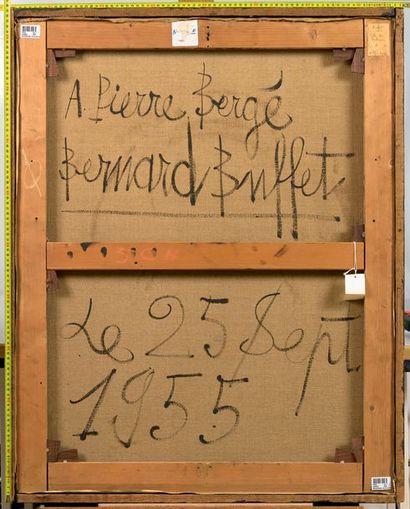 A. Pierre Bergé
Bernard Buffet
Le 25 Sept
1955